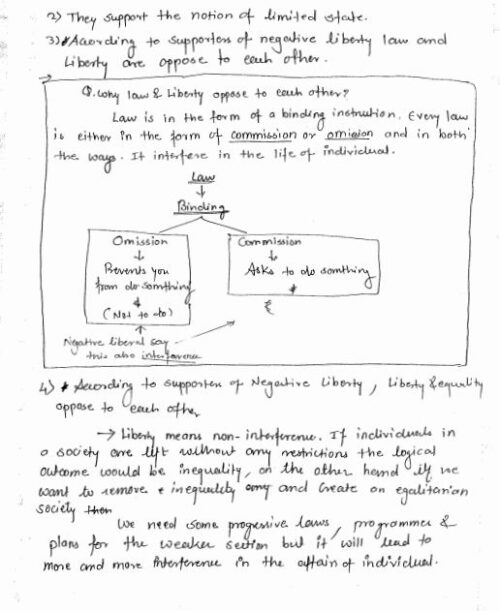 2) They support the notion of limited state.
3) Acording to supporters of negative liberty law and
Liberty are oppose to each other.
Q. Why law & Liberty oppose to each other?
Law is in the form of a binding instruction. Every law
is either in the form of commission or omision and in both
the ways. It interfere in the life of individual.
Law
↓
Binding
Omission
↓
Prevents you
from do somthing
↓
(Not to do)
Commission
↓
Asks to do somthing
Negative liberal say
this also interference
4) * According to supporters of Negative Liberty, Liberty & equality
oppose to each other
→ Liberty means non-interference. If individuals in
a society are left without any restrictions the logical
outcome would be inequality, on the other hand if we
want to remove inequality and create an egalitarian
society then
We need some progressive laws, programmes &
plans for the weaker section but it will lead to
more and more interference in the affairs of individual.